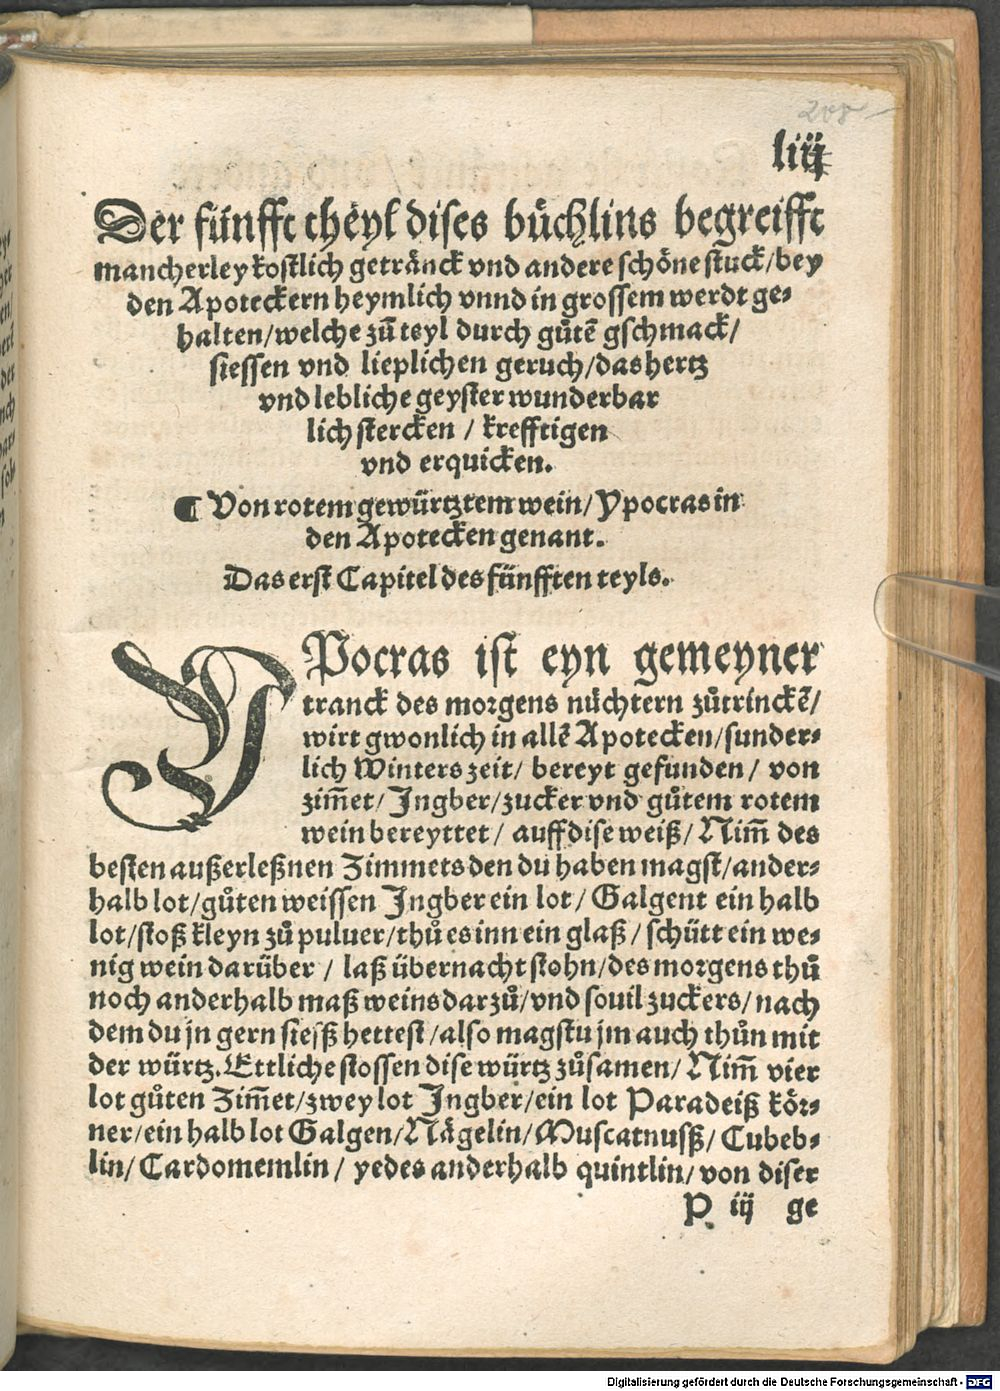 208
liij
Der fünfft theyl dises bůchlins begreifft
mancherley kostlich getränck vnd andere schöne stuck/bey
den Apoteckern heymlich vnnd in grossem werdt ge-
halten/welche zů teyl durch gůtē gschmack/
siessen vnd lieplichen geruch/das hertz
vnd lebliche geyster wunderbar
lich stercken / krefftigen
vnd erquicken.
¶ Von rotem gewürtztem wein/ Ypocras in
den Apotecken genant.
Das erst Capitel des fünfften teyls.
YPocras ist eyn gemeyner
tranck des morgens nüchtern zůtrinckē/
wirt gwonlich in allē Apotecken/sunder-
lich Winterszeit/ bereyt gefunden/ von
zim̄et/ Ingber/zucker vnd gůtem rotem
wein bereyttet/ auff dise weiß/ Nim̄ des
besten außerleßnen Zimmets den du haben magst/ander-
halb lot/gůten weissen Ingber ein lot/ Galgent ein halb
lot/stoß kleyn zů puluer/thů es inn ein glaß/ schütt ein we-
nig wein darüber / laß übernacht stohn/des morgens thů
noch anderhalb maß weins darzů/vnd souil zuckers/nach
dem du jn gern siesß hettest/also magstu jm auch thůn mit
der würtz. Ettliche stossen dise würtz zůsamen/ Nim̄ vier
lot gůten Zim̄et/zwey lot Ingber/ein lot Paradeiß kör-
ner/ein halb lot Galgen/Nägelin/Muscatnusß/ Cubeb-
lin/ Cardomemlin/ yedes anderhalb quintlin/von diser
P iij ge
Digitalisierung gefördert durch die Deutsche Forschungsgemeinschaft - DFG